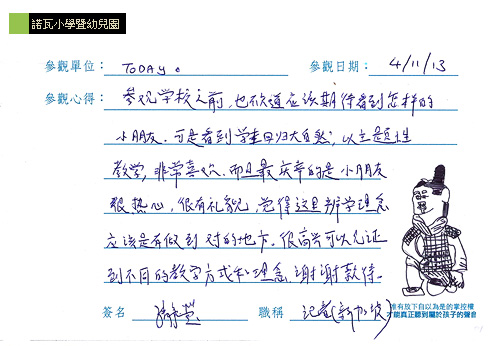 諾瓦小學暨幼兒園
參觀單位： TODAY。 參觀日期： 4/11/13
參觀心得： 參观学校之前，也不知道应该期待看到怎样的
小朋友。可是看到学生回归大自然，以主题性
教学，非常喜欢。而且最庆幸的是小朋友
很热心，很有礼貌，觉得这里办学理念
应该是有做到对的地方。很高兴可以见证
到不同的教学方式和理念，谢谢款待。
簽名 職稱 记者(新加坡)
惟有放下自以為是的掌控權
才能真正聽到屬於孩子的聲音